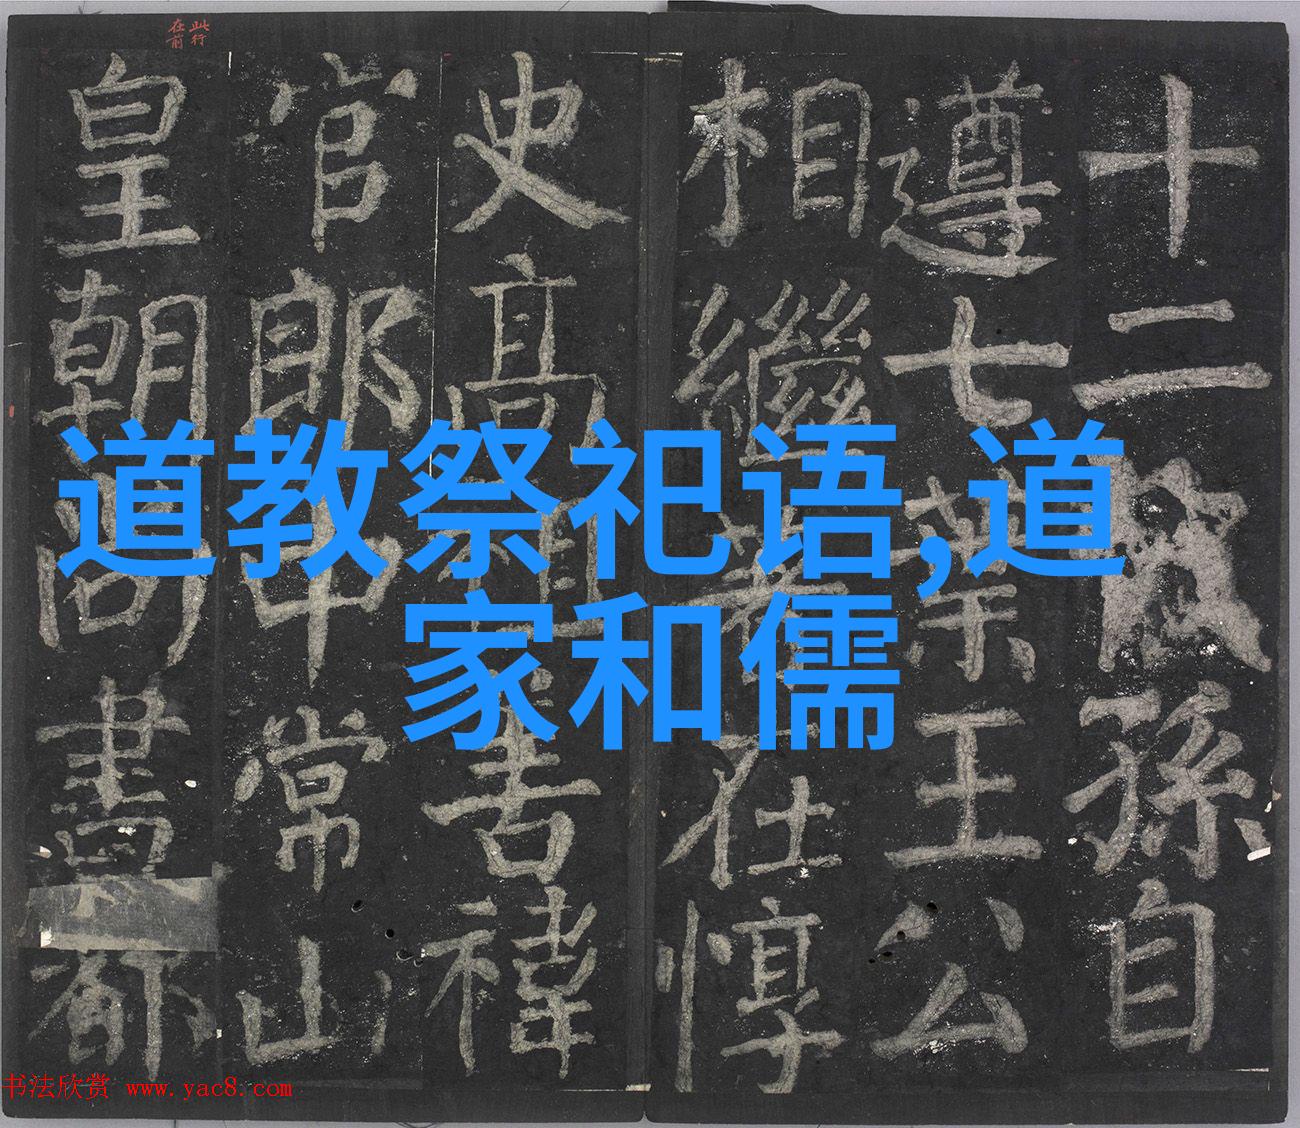 道教祭祀语,道
家和儒
此行
在前
十二代孙自
遵七叶王公
相继著在惇
史高祖書禕
官郎中常山
皇朝尚書都
书法欣赏 www.yac8.com